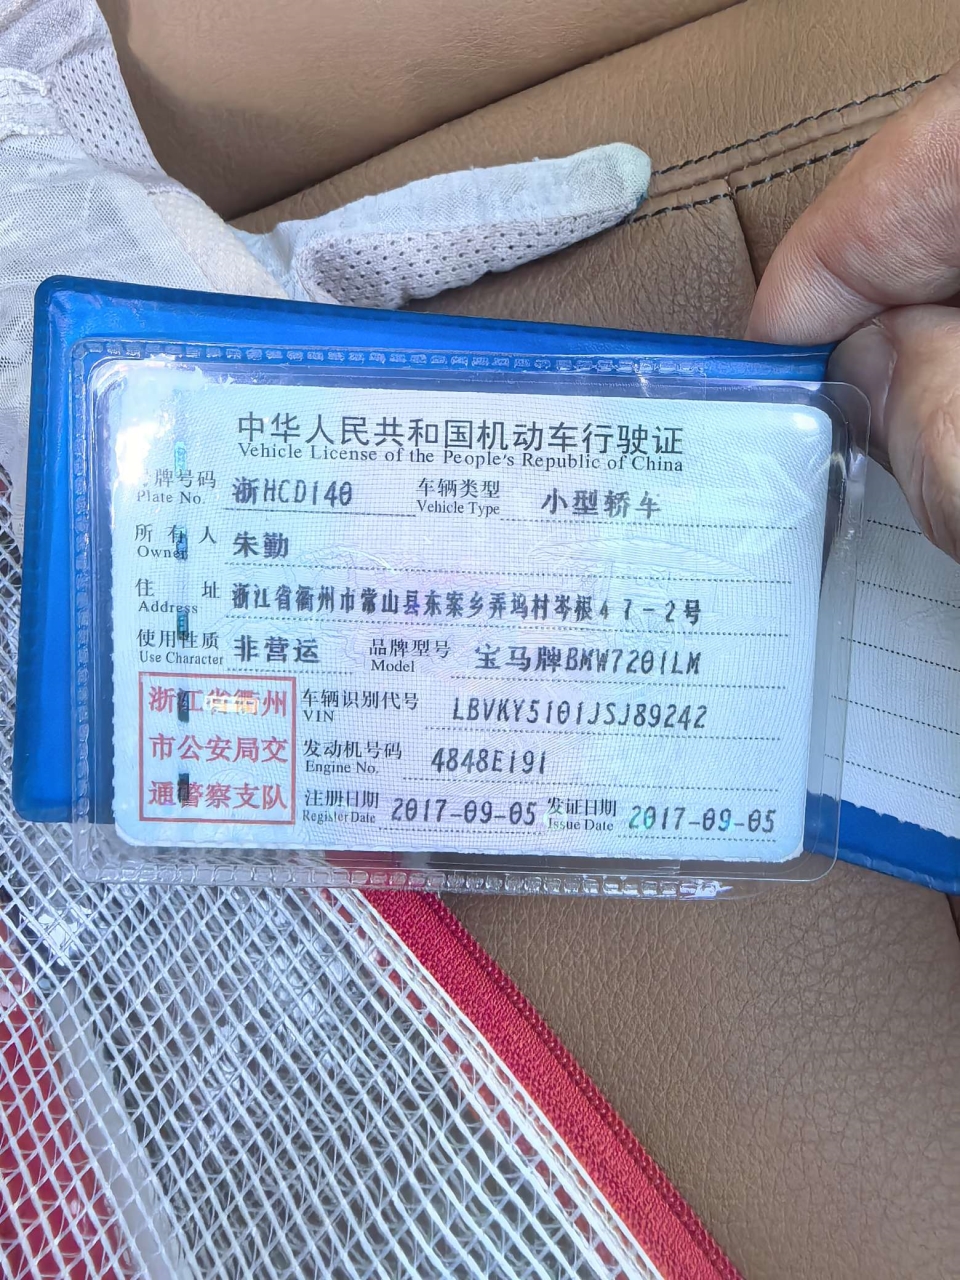 中华人民共和国机动车行驶证
Vehicle License of the People's Republic of China
牌号码 浙HCD140 车辆类型 小型轿车
Plate No. Vehicle Type
所有人 朱勤
Owner
住址 浙江省衢州市常山县东案乡弄坞村岑根47-2号
Address
使用性质 非营运 品牌型号 宝马牌BMW7201LM
Use Character Model
浙江省衢州
市公安局交
通警察支队
车辆识别代号 LBVKY5101JSJ89242
VIN
发动机号码 4848E191
Engine No.
注册日期 2017-09-05 发证日期 2017-09-05
Register Date Issue Date